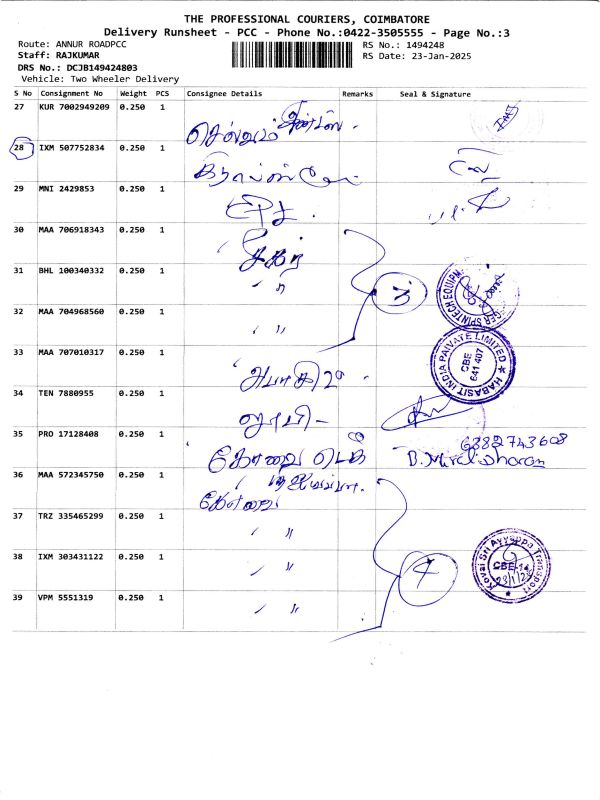 THE PROFESSIONAL COURIERS, COIMBATORE
Delivery Runsheet - PCC - Phone No.:0422-3505555 - Page No.:3
Route: ANNUR ROADPCC
RS No.: 1494248
Staff: RAJKUMAR
RS Date: 23-Jan-2025
DRS No.: DCJB149424803
Vehicle: Two Wheeler Delivery
S No Consignment No Weight PCS Consignee Details Remarks Seal & Signature
27 KUR 7002949209 0.250 1
28 IXM 507752834 0.250 1
29 MNI 2429853 0.250 1
30 MAA 706918343 0.250 1
31 BHL 100340332 0.250 1 〃
3
SPINTECH EQUIPM
32 MAA 704968560 0.250 1 〃
HABASIT INDIA PAIVATE LIMITED
CBE
641 407
33 MAA 707010317 0.250 1
34 TEN 7880955 0.250 1
35 PRO 17128408 0.250 1 கோவை
6382743608
36 MAA 572345750 0.250 1
கோவை
37 TRZ 335465299 0.250 1 〃
38 IXM 303431122 0.250 1 〃
Kovai Sri Ayyappa Transport
CBE-14
39 VPM 5551319 0.250 1 〃